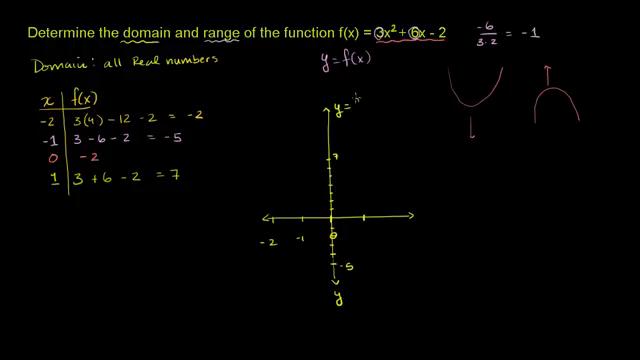 Determine the domain and range of the function f(x) = 3x² + 6x - 2
-6 / 3·2 = -1
Domain: all Real numbers
y = f(x)
x | f(x)
-2 | 3(4) - 12 - 2 = -2
-1 | 3 - 6 - 2 = -5
0 | -2
1 | 3 + 6 - 2 = 7
y =
7
-2 -1 0
-5
y